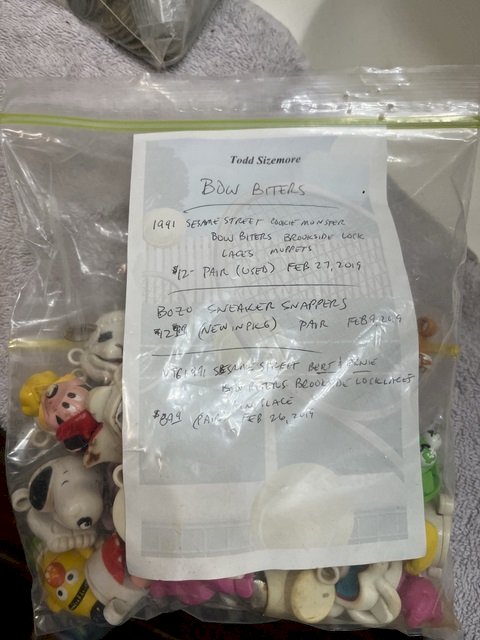 Todd Sizemore
BOW BITERS
1991 SESAME STREET COOKIE MONSTER
BOW BITERS BROOKSIDE LOCK
LACES MUPPETS
$12- PAIR (USED) FEB 27, 2019
BOZO SNEAKER SNAPPERS
(NEW IN PKG) PAIR FEB
1991 SESAME STREET BERT & ERNIE
BOW BITERS BROOKSIDE LOCKLACES
IN PLACE
FEB 26, 2019